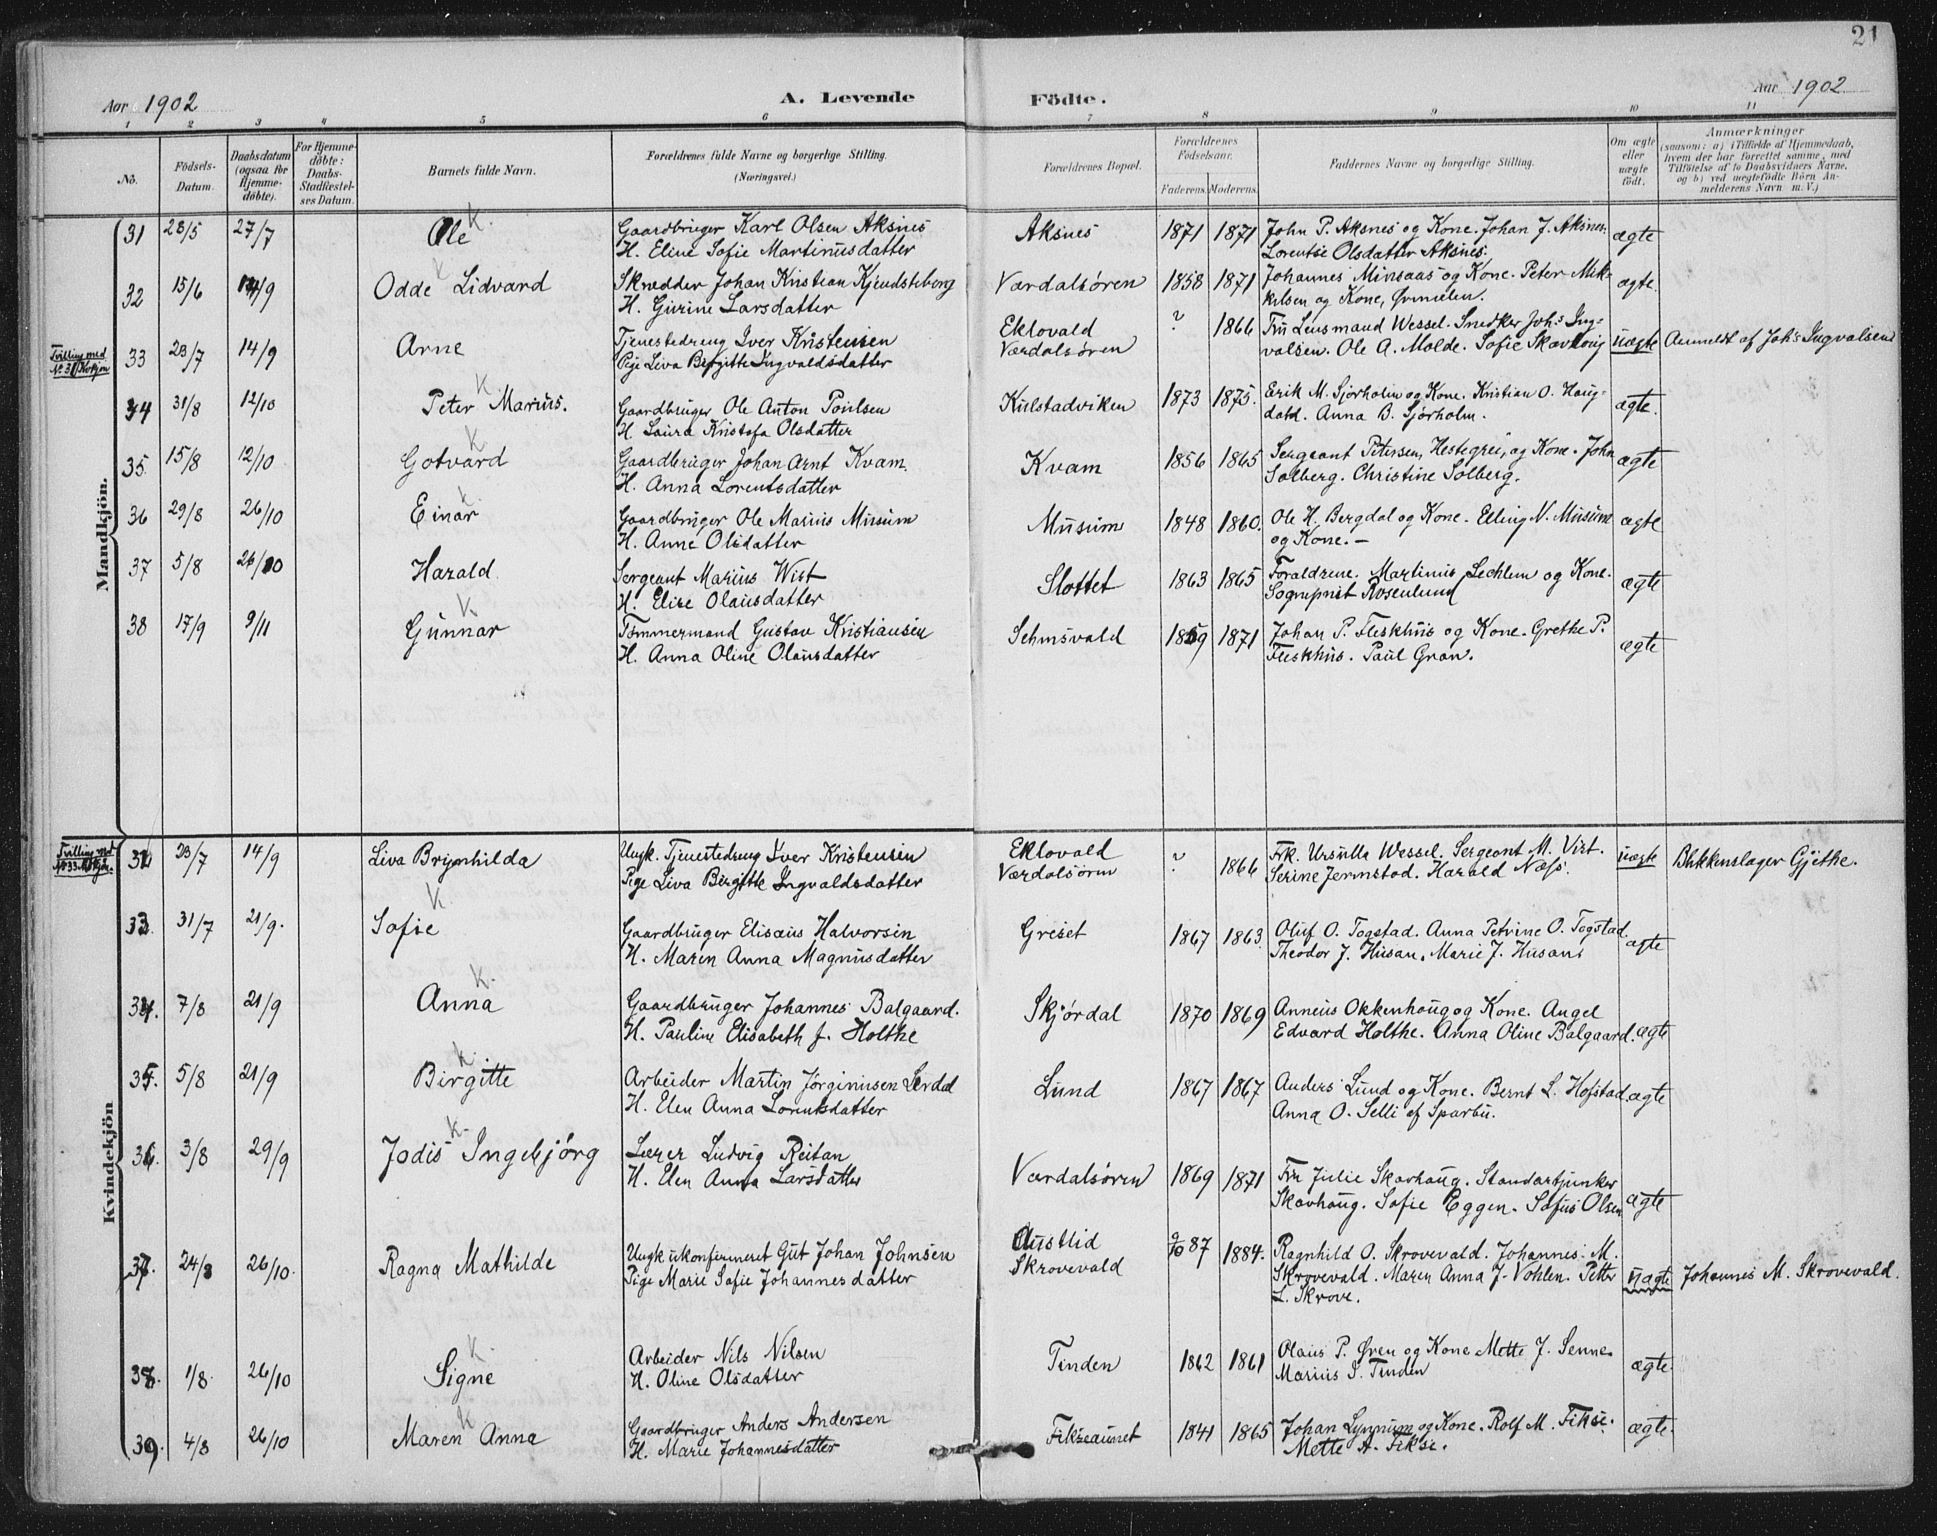 21
Aar 1902
A. Levende
Födte.
Aar 1902
1 2 3 4 5 6 7 8 9 10 11
No.
Födsels-Datum.
Daabsdatum (ogsaa for Hjemmedöbte).
For Hjemmedöbte: Daabs-Stadfæstelses Datum.
Barnets fulde Navn.
Forældrenes fulde Navne og borgerlige Stilling. (Næringsvei.)
Forældrenes Bopæl.
Forældrenes Födselsaar.
Faderens. Moderens.
Faddernes Navne og borgerlige Stilling.
Om ægte eller uægte födt.
Anmærkninger
(saasom: a) i Tilfælde af Hjemmedaab, hvem der har forrettet samme, med Tilföielse af to Daabsvidners Navne. og b) ved uægtefödte Börn Anmelderens Navn m. V.)
Mandkjön.
31 23/5 27/7 Ole K Gaardbruger Karl Olsen Aksnes Aksnes 1871 1871 John P. Aksnes og Kone. Johan J. Aksnes. ægte
H. Eline Sofie Martinusdatter Lorentse Olsdatter Aksnes.
32 15/6 14/9 Odde Lidvard K Skrædder Johan Kristian Kjendstеberg Værdalsören 1858 1871 Johannes Minsaas og Kone. Peter Mik- ægte.
H. Gurine Larsdatter kelsen og Kone,
Tvilling med No. 31 Kvkjøn
33 23/7 14/9 Arne Tjenestedreng Iver Kristensen Eklovald ? 1866 Fru Lensmand Wessel. Snedker Johs Ing- uægte Anmeldt af Johs Ingvalsen
Pige Liva Birgitte Ingvaldsdatter Værdalsören valsen. Ole A. Molde. Sofie Skavhoug
34 31/8 12/10 Peter Marius. K Gaardbruger Ole Anton Poulsen Kulstadviken 1873 1875. Erik M. Sjørholm og Kone. Kristian O. Haug- ægte.
H. Laura Kristofa Olsdatter dahl. Anna B. Sjørholm.
35. 15/8 12/10 Gotvard K Gaardbruger Johan Arnt Kvam. Kvam 1856 1865 Sergeant Petersen, Hestegrei, og Kone. John ægte
H. Anna Lorentsdatter Solberg. Christine Solberg.
36 29/8 26/10 Einar K. Gaardbruger Ole Marius Musum Musum 1848 1860. Ole H. Bergdal og Kone. Elling N. Musum ægte
H. Anne Olsdatter og Kone. –
37 5/8 26/10 Harald Sergeant Marius Wist Slottet 1863 1865 Forældrene. Martinus Lechlem og Kone. ægte
H. Elise Olausdatter Sogneprest Rosenlund
38 17/9 9/11 Gunnar K Tømmermand Gustav Kristiansen Sehmsvald 1859 1871 Johan P. Fleskhus og Kone. Grethe P. ægte
H. Anna Oline Olausdatter Fleskhus. Paul Gran.
Kvindekjön
Tvilling med No 33 Mdkjøn.
31 23/7 14/9 Liva Brynhilda Ungk. Tjenestedreng Iver Kristensen Eklovald ? 1866 Frk. Ursulla Wessel. Sergeant M. Vist. uægte Blikkenslager Gjethe.
Pige Liva Birgitte Ingvaldsdatter Værdalsören Serine Jermstad. Harald Næss.
33. 31/7 21/9. Sofie K Gaardbruger Elisæus Halvorsen Greiet 1867 1863. Oluf O. Togstad. Anna Petrine O. Togstad. ægte
H. Maren Anna Magnusdatter Theodor J. Husan, Marie J. Husan.
34. 7/8 21/9 Anna K. Gaardbruger Johannes Balgaard. Skjørdal 1870 1869 Anneus Okkenhaug og Kone. Angel
H. Pauline Elisabeth J. Holthe Edvard Holthe. Anna Oline Balgaard. ægte
35. 5/8 21/9 Birgitte K. Arbeider Martin Jørginusen Lerdal Lund 1867 1867 Anders Lund og Kone. Bernt L. Hofstad ægte
H. Elen Anna Lorentsdatter Anna O. Selli af Sparbu.
36. 3/8 29/9 Jodis Ingebjörg K. Lærer Ludvig Reitan Værdalsören 1869 1871 Fru Julie Skavhaug. Standartjunker
H. Elen Anna Larsdatter Skavhaug. Sofie Eggen. Sofus Olsen ægte
37. 24/8 26/10. Ragna Mathilde Ungk ukonfirmeret Gut Johan Johnsen Austlid 9/10 87 1884. Ragnhild O. Skrovevald. Johannes M.
Pige Marie Sofie Johannesdatter Skrovevald Skrovevald. Maren Anna J. Vohlen. Petter uægte Johannes M. Skrovevald.
L. Skrove.
38. 1/8. 26/10 Signe K. Arbeider Nils Nilsen Tinden 1862 1861 Olaus P. Øren og Kone Mette J. Senne. ægte.
H. Oline Olsdatter Marius S. Tinden
39. 4/8 26/10 Maren Anna K Gaardbruger Anders Andersen Fikseaunet 1841 1865 Johan Lyngum og Kone. Rolf M. Fikse. ægte.
H. Marie Johannesdatter Mette A. Fikse.